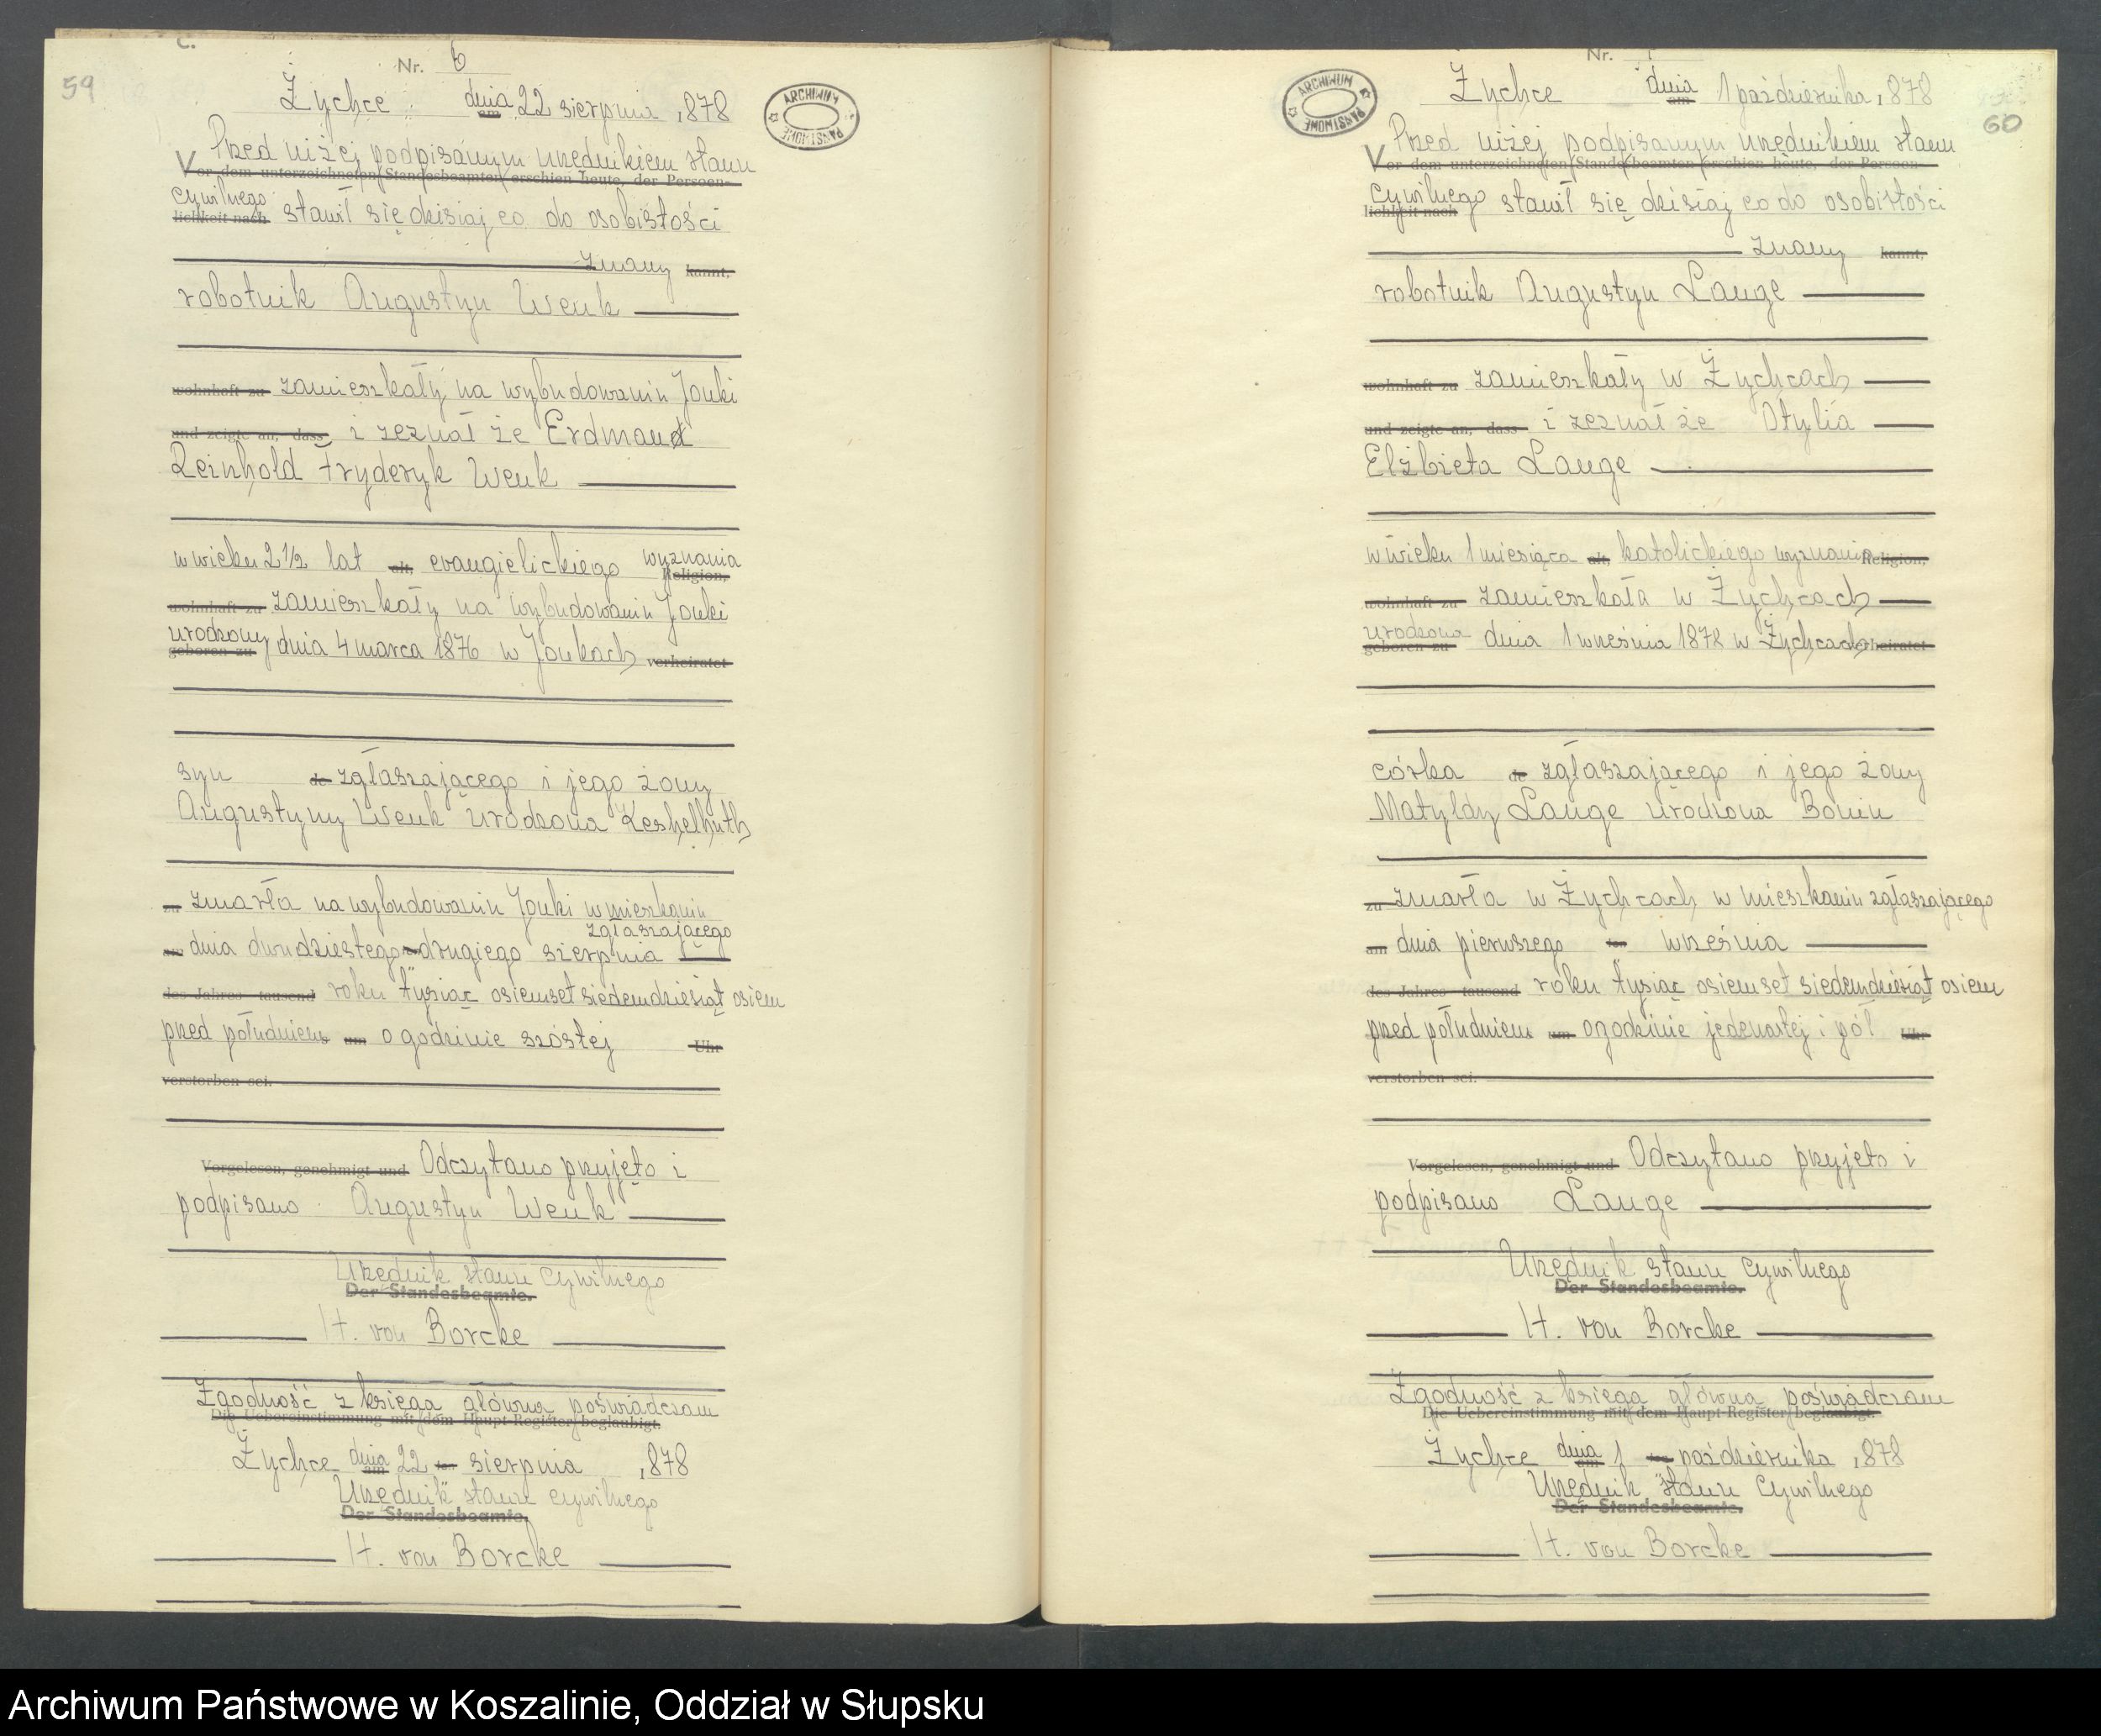 59
C.
Nr. 6
Żychce dnia am 22 sierpnia 1878
ARCHIWUM PAŃSTWOWE
Przed niżej podpisanym urzędnikiem stanu
Vor dem unterzeichneten Standesbeamten erschien heute, der Persoen-
cywilnego
lichkeit nach stawił się dzisiaj co do osobistości
znany kannt,
robotnik Augustyn Wenk
wohnhaft zu zamieszkały na wybudowaniu Jonki
und zeigte an, dass i zeznał że Erdmand
Reinhold Fryderyk Wenk
w wieku 2 1/2 lat alt, evangielickiego wyznania
Religion,
wohnhaft zu zamieszkały na wybudowaniu Jonki
urodzony
geboren zu dnia 4 marca 1876 w Jonkach verheiratet
syn de zgłaszającego i jego żony
Augustyny Wenk urodzona Keshelhuth
zu zmarła na wybudowaniu Jonki w mieszkaniu
zgłaszającego
am dnia dwudziestego drugiego sierpnia
des Jahres tausend roku tysiąc osiemset siedemdziesiąt osiem
przed południem um o godzinie szóstej Uhr
verstorben sei.
Vorgelesen, genehmigt und Odczytano przyjęto i
podpisano Augustyn Wenk
Urzędnik stanu cywilnego
Der Standesbeamte.
H. von Borcke
Zgodność z księgą główną poświadczam
Die Uebereinstimmung mit dem Haupt-Register beglaubigt.
Żychce dnia am 22 ten sierpnia 1878
Urzędnik stanu cywilnego
Der Standesbeamte.
H. von Borcke
60
Nr.
ARCHIWUM PAŃSTWOWE
Żychce dnia am 1 października 1878
Przed niżej podpisanym urzędnikiem stanu
Vor dem unterzeichneten Standesbeamten erschien heute, der Persoen-
cywilnego
lichkeit nach stawił się dzisiaj co do osobistości
znany kannt,
robotnik Augustyn Lange
wohnhaft zu zamieszkały w Żychcach
und zeigte an, dass i zeznał że Otylia
Elżbieta Lange
w wieku 1 miesiąca alt, katolickiego wyznania Religion,
wohnhaft zu zamieszkała w Żychcach
urodzona
geboren zu dnia 1 września 1878 w Żychcach verheiratet
córka de zgłaszającego i jego żony
Matyldy Lange urodzona Bonin
zu zmarła w Żychcach w mieszkaniu zgłaszającego
am dnia pierwszego ten września
des Jahres tausend roku tysiąc osiemset siedemdziesiąt osiem
przed południem um o godzinie jedenastej i pół Uhr
verstorben sei.
Vorgelesen, genehmigt und Odczytano przyjęto i
podpisano Lange
Urzędnik stanu cywilnego
Der Standesbeamte.
H. von Borcke
Zgodność z księgą główną poświadczam
Die Uebereinstimmung mit dem Haupt-Register beglaubigt.
Żychce dnia am 1 ten października 1878
Urzędnik stanu cywilnego
Der Standesbeamte.
H. von Borcke
Archiwum Państwowe w Koszalinie, Oddział w Słupsku